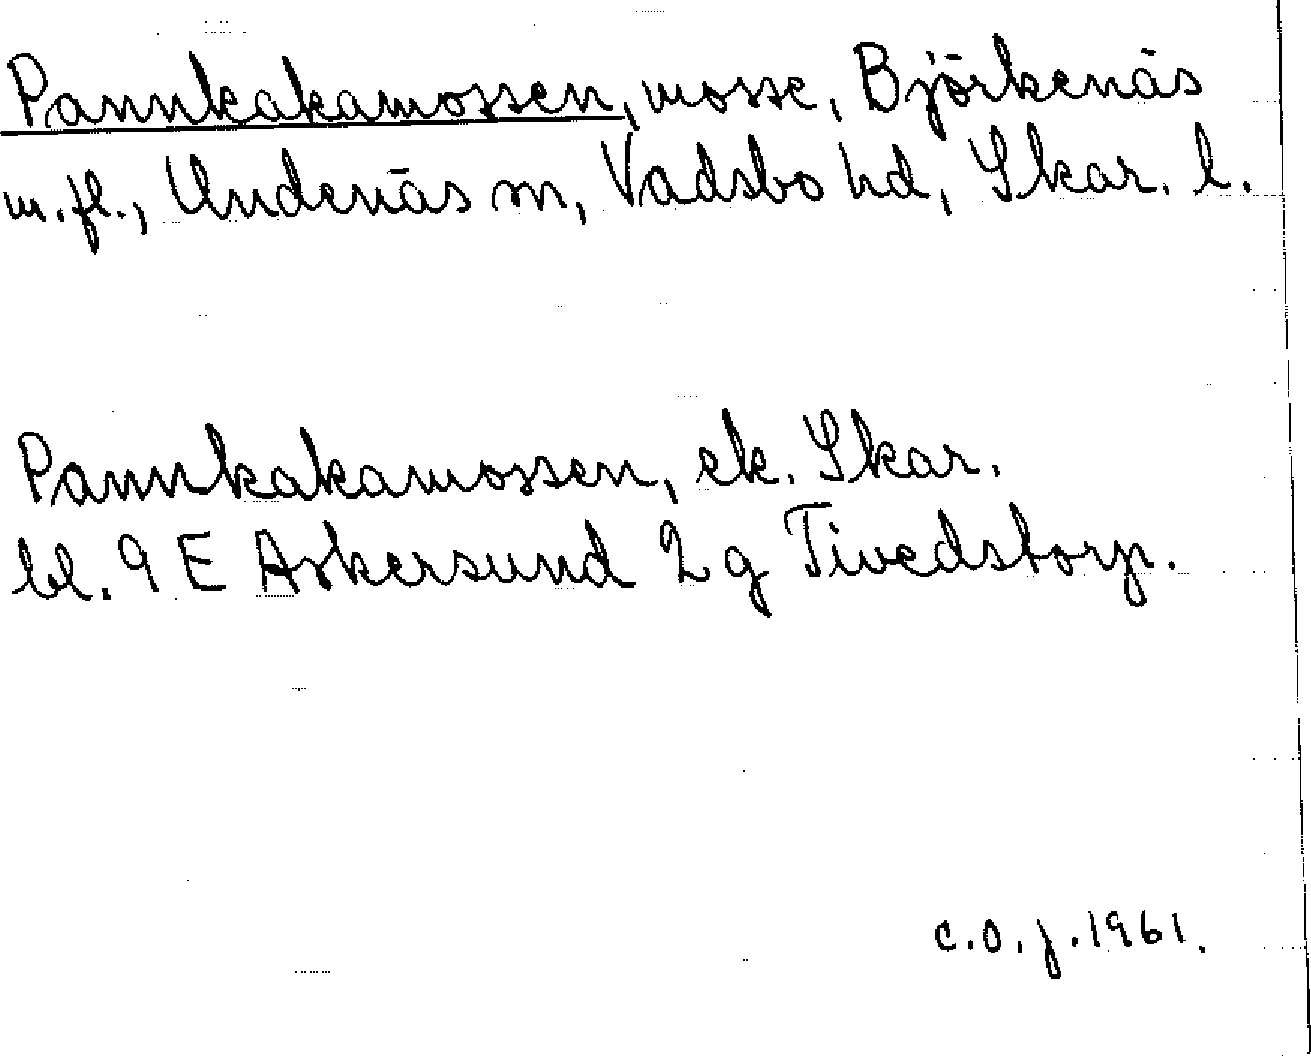 Pannkakamossen, mosse, Björkenäs
m.fl., Undenäs sn, Vadsbo hd, Skar. l.
Pannkakamossen, ek. Skar.
bl. 9 E Askersund 2 g Tivedstorp.
C.O.J. 1961.